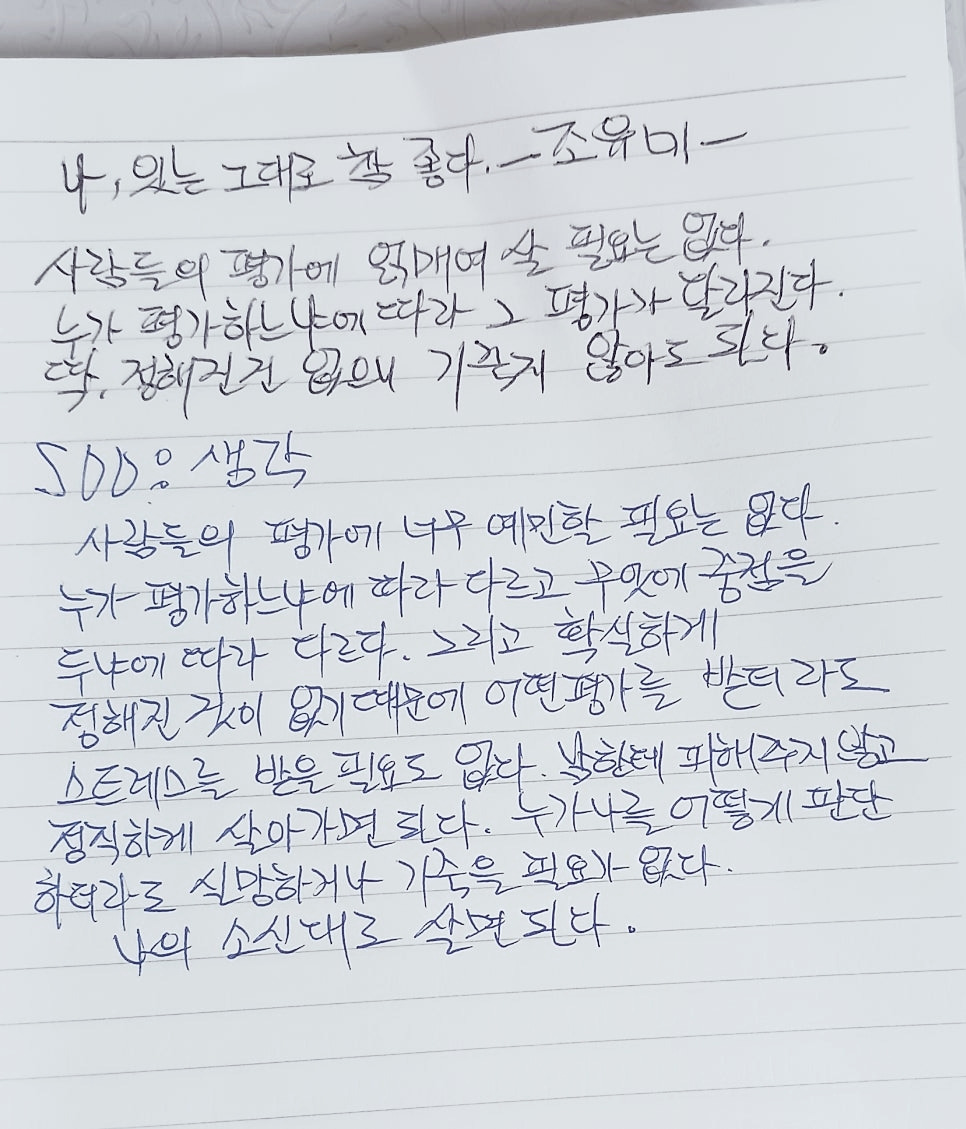 나, 있는 그대로 참 좋다. - 조유미 -
사람들의 평가에 얽매여 살 필요는 없다.
누가 평가하느냐에 따라 그 평가가 달라진다.
딱, 정해진건 없으니 기죽지 않아도 된다.
SDD: 생각
사람들의 평가에 너무 예민할 필요는 없다.
누가 평가하느냐에 따라 다르고 무엇에 중점을
두냐에 따라 다르다. 그리고 확실하게
정해진 것이 없기때문에 어떤평가를 받더라도
스트레스를 받을 필요도 없다. 남한테 피해주지 않고
정직하게 살아가면 된다. 누가나를 어떻게 판단
하더라도 실망하거나 기죽을 필요가 없다.
나의 소신대로 살면 된다.